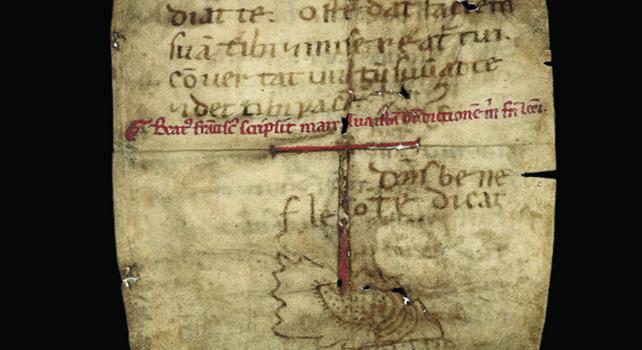 diat te. Oste dat faciem
suā tibi 7 misereat tui.
cōver tat uultū suū ad te
7 det tibi pacē
Beatꝰ frāciscꝰ scripsit manu sua istā bn̄dictionē m̄ fr̄i leoni.
dn̄s bene
f leo te dicat